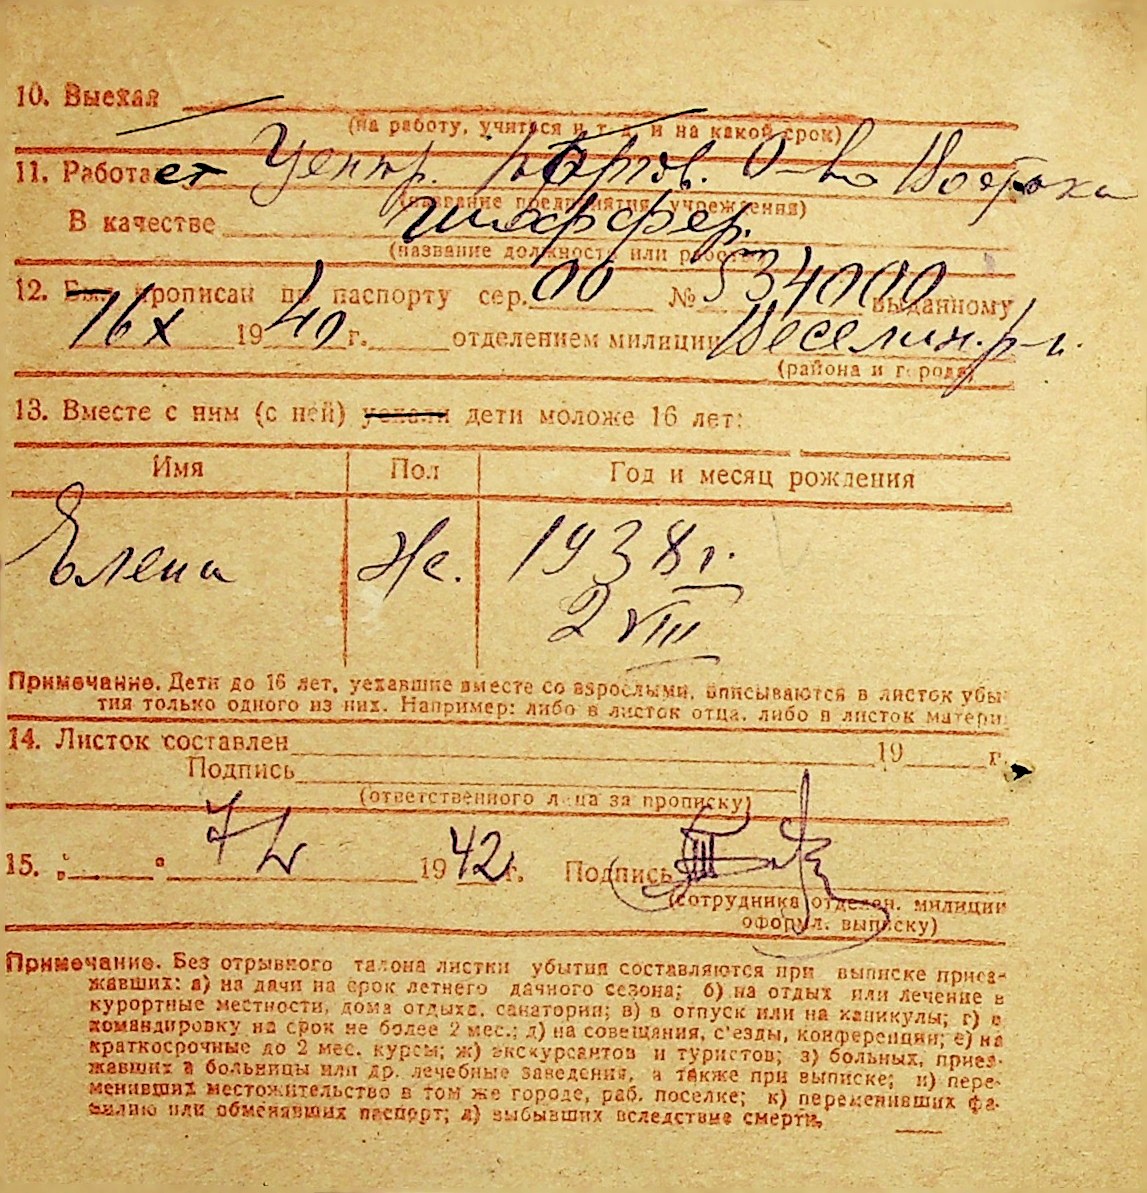 10. Выехал
(на работу, учиться и т. д. и на какой срок)
11. Работает Центр. торгов. О-во Востока
(название предприятия, учреждения)
В качестве шоффер.
(название должности или работы)
12. Был прописан по паспорту сер. 00 № 534000 выданному
16 X 1940 г. отделением милиции Веселин. р-н.
(района и города)
13. Вместе с ним (с ней) уехали дети моложе 16 лет:
Имя Пол Год и месяц рождения
Елена Ж. 1938 г.
2 VIII
Примечание. Дети до 16 лет, уехавшие вместе со взрослыми, вписываются в листок убы-
тия только одного из них. Например: либо в листок отца, либо в листок матери.
14. Листок составлен 19 г.
Подпись
(ответственного лица за прописку)
15. 7 1942 г. Подпись
(сотрудника отделен. милиции
оформл. выписку)
Примечание. Без отрывного талона листки убытия составляются при выписке приез-
жавших: а) на дачи на срок летнего дачного сезона; б) на отдых или лечение в
курортные местности, дома отдыха, санатории; в) в отпуск или на каникулы; г) в
командировку на срок не более 2 мес.; д) на совещания, с'езды, конференции; е) на
краткосрочные до 2 мес. курсы; ж) экскурсантов и туристов; з) больных, приез-
жавших в больницы или др. лечебные заведения, а также при выписке; и) пере-
менивших местожительство в том же городе, раб. поселке; к) переменивших фа-
милию или обменявших паспорт; л) выбывших вследствие смерти.